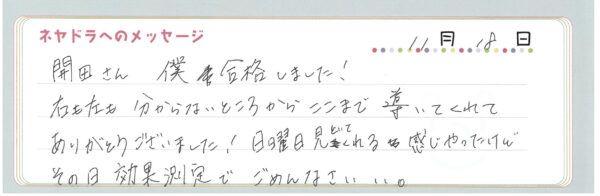 ネヤドラへのメッセージ 11月18日
開田さん 僕合格しました!
右も左も 分からないところから ここまで 導いてくれて
ありがとうございました! 日曜日見といてくれる 感じやったけど
その日 効果測定で ごめんなさいぃぃ。